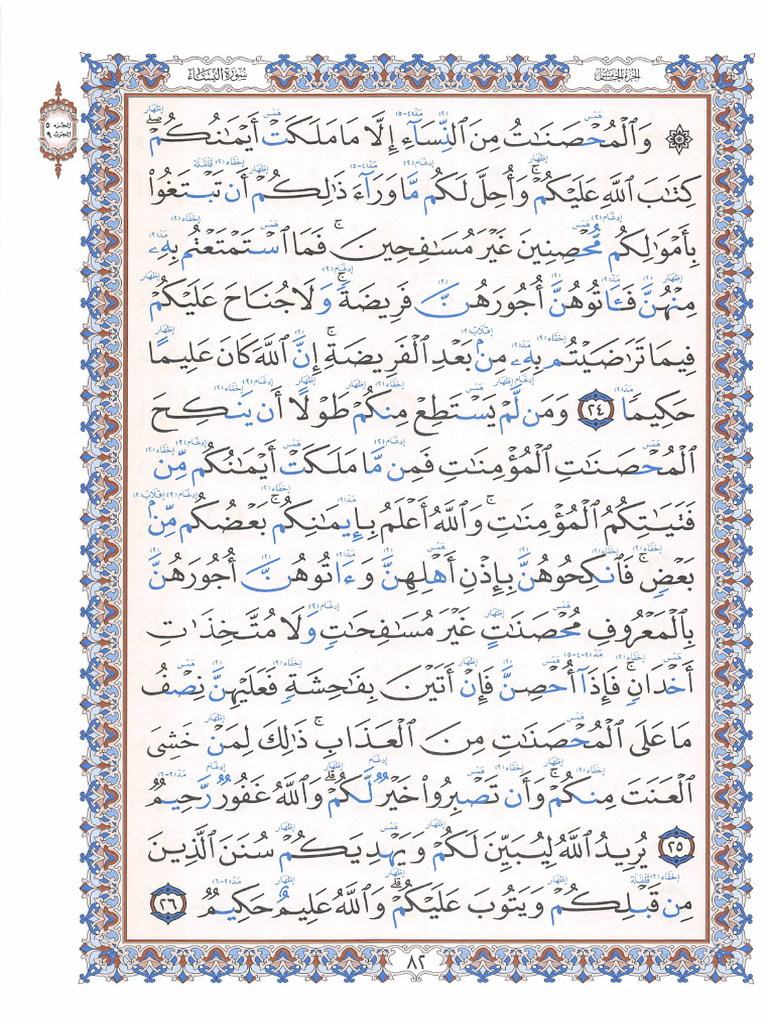 سورة النساء
الجزء الخامس
الجزء ٥
الحزب ٩
۞ وَٱلْمُحْصَنَٰتُ مِنَ ٱلنِّسَآءِ إِلَّا مَا مَلَكَتْ أَيْمَٰنُكُمْ ۖ
كِتَٰبَ ٱللَّهِ عَلَيْكُمْ ۚ وَأُحِلَّ لَكُم مَّا وَرَآءَ ذَٰلِكُمْ أَن تَبْتَغُوا۟
بِأَمْوَٰلِكُم مُّحْصِنِينَ غَيْرَ مُسَٰفِحِينَ ۚ فَمَا ٱسْتَمْتَعْتُم بِهِۦ
مِنْهُنَّ فَـَٔاتُوهُنَّ أُجُورَهُنَّ فَرِيضَةً ۚ وَلَا جُنَاحَ عَلَيْكُمْ
فِيمَا تَرَٰضَيْتُم بِهِۦ مِنۢ بَعْدِ ٱلْفَرِيضَةِ ۚ إِنَّ ٱللَّهَ كَانَ عَلِيمًا
حَكِيمًا ٢٤ وَمَن لَّمْ يَسْتَطِعْ مِنكُمْ طَوْلًا أَن يَنكِحَ
ٱلْمُحْصَنَٰتِ ٱلْمُؤْمِنَٰتِ فَمِن مَّا مَلَكَتْ أَيْمَٰنُكُم مِّن
فَتَيَٰتِكُمُ ٱلْمُؤْمِنَٰتِ ۚ وَٱللَّهُ أَعْلَمُ بِإِيمَٰنِكُم ۚ بَعْضُكُم مِّنۢ
بَعْضٍ ۚ فَٱنكِحُوهُنَّ بِإِذْنِ أَهْلِهِنَّ وَءَاتُوهُنَّ أُجُورَهُنَّ
بِٱلْمَعْرُوفِ مُحْصَنَٰتٍ غَيْرَ مُسَٰفِحَٰتٍ وَلَا مُتَّخِذَٰتِ
أَخْدَانٍ ۚ فَإِذَآ أُحْصِنَّ فَإِنْ أَتَيْنَ بِفَٰحِشَةٍ فَعَلَيْهِنَّ نِصْفُ
مَا عَلَى ٱلْمُحْصَنَٰتِ مِنَ ٱلْعَذَابِ ۚ ذَٰلِكَ لِمَنْ خَشِىَ
ٱلْعَنَتَ مِنكُمْ ۚ وَأَن تَصْبِرُوا۟ خَيْرٌ لَّكُمْ ۗ وَٱللَّهُ غَفُورٌ رَّحِيمٌ
٢٥ يُرِيدُ ٱللَّهُ لِيُبَيِّنَ لَكُمْ وَيَهْدِيَكُمْ سُنَنَ ٱلَّذِينَ
مِن قَبْلِكُمْ وَيَتُوبَ عَلَيْكُمْ ۗ وَٱللَّهُ عَلِيمٌ حَكِيمٌ ٢٦
٨٢